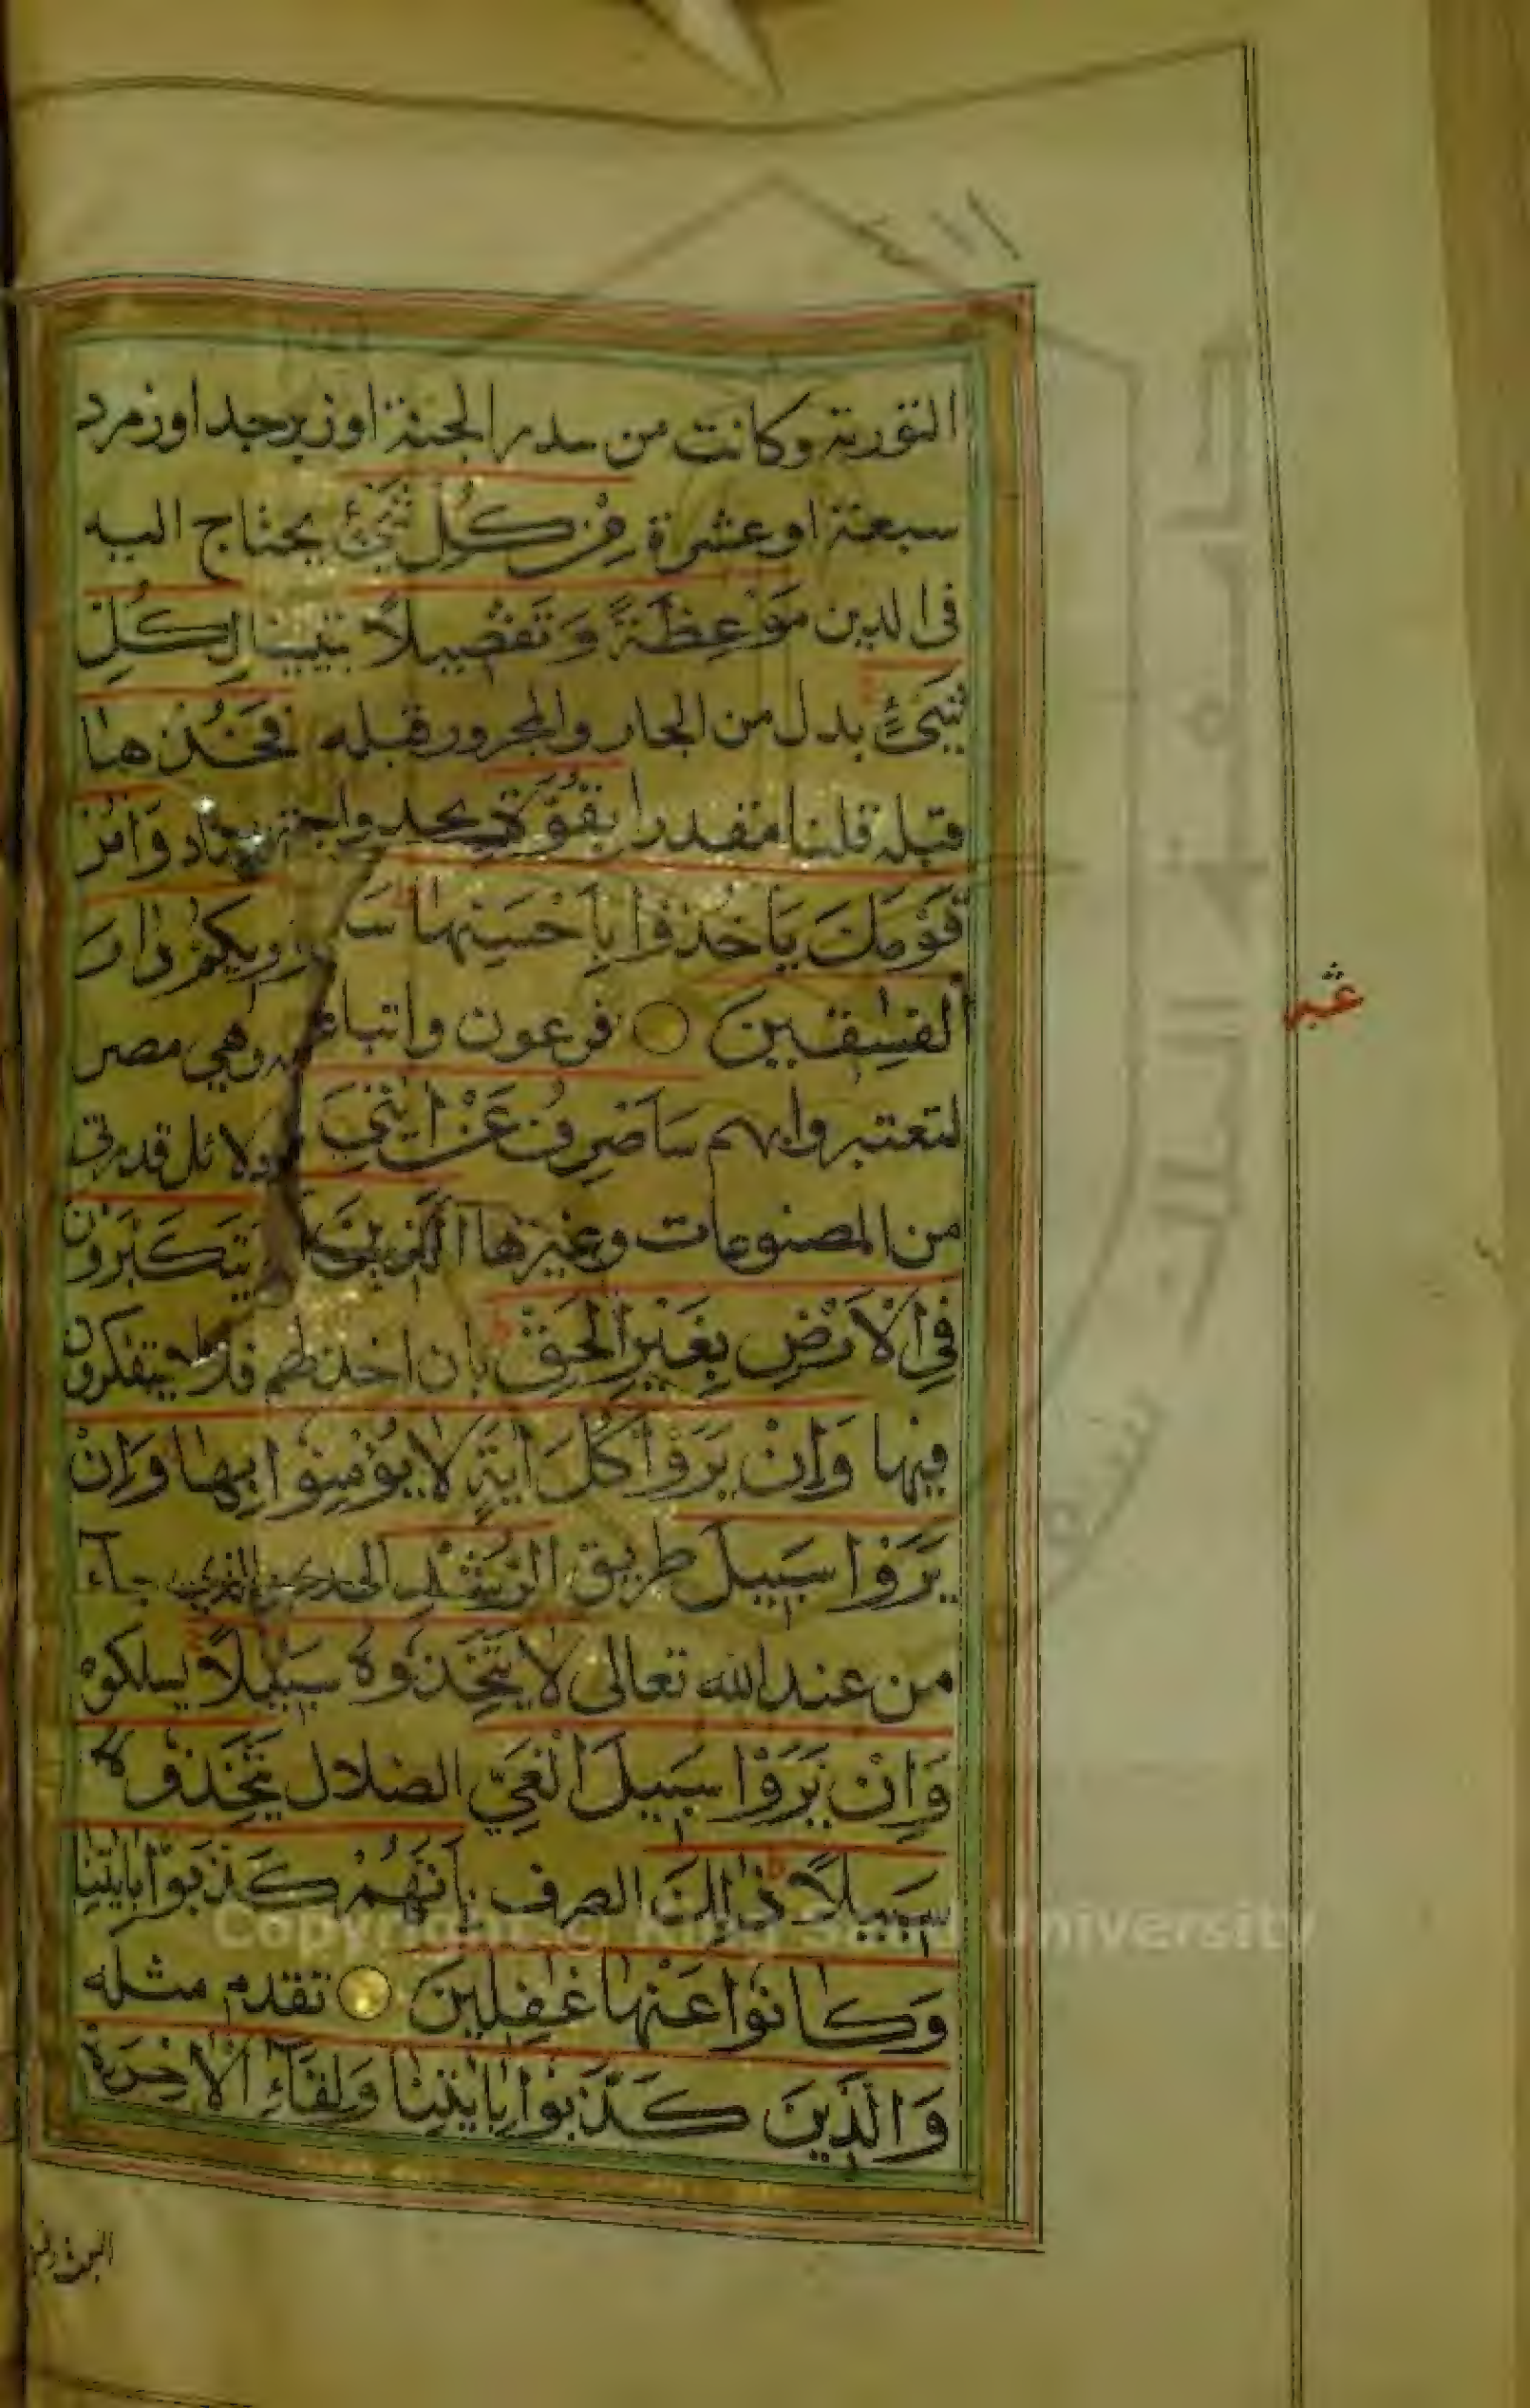 التورية وكانت من سدر الجنة او زبرجد او زمرد
سبعة او عشرة مِنْ كُلِّ شَيْءٍ يحتاج اليه
فى الدين مَوْعِظَةً وَتَفْصِيلًا تبيينا لِكُلِّ
شَيْءٍ بدل من الجار والمجرور قبله فَخُذْهَا
قبله قلنا مقدرا بِقُوَّةٍ بجد واجتهاد وَأْمُرْ
قَوْمَكَ يَأْخُذُوا بِأَحْسَنِهَا سَاُورِيكُمْ دَارَ
الْفٰسِقِينَ فرعون واتباعه وهي مصر
لتعتبروا بهم سَاَصْرِفُ عَنْ اٰيٰتِيَ دلائل قدرتى
من المصنوعات وغيرها الَّذِينَ يَتَكَبَّرُونَ
فِي الْاَرْضِ بِغَيْرِ الْحَقِّ بان اخذلهم فلا يتفكرون
فيها وَاِنْ يَرَوْا كُلَّ اٰيَةٍ لَا يُؤْمِنُوا بِهَا وَاِنْ
يَرَوْا سَبِيلَ طريق الرُّشْدِ الهدى الذي جآء
من عند الله تعالى لَا يَتَّخِذُوهُ سَبِيلًا يسلكوه
وَاِنْ يَرَوْا سَبِيلَ الْغَيِّ الضلال يَتَّخِذُوهُ
سَبِيلًا ذٰلِكَ الصرف بِاَنَّهُمْ كَذَّبُوا بِاٰيٰتِنَا
وَكَانُوا عَنْهَا غٰفِلِينَ تقدم مثله
وَالَّذِينَ كَذَّبُوا بِاٰيٰتِنَا وَلِقَآءِ الْاٰخِرَةِ
جامعة الملك سعود
Copyright © King Saud University